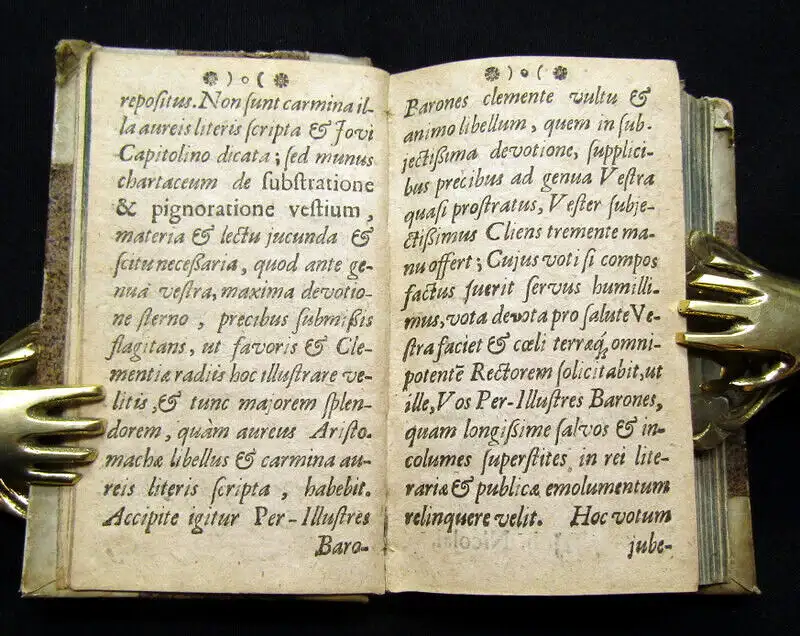 repositus. Non sunt carmina il-
la aureis literis scripta & Jovi
Capitolino dicata; sed munus
chartaceum de substratione
& pignoratione vestium,
materia & lectu jucunda &
scitu necessaria, quod ante ge-
nua vestra, maxima devotio-
ne sterno, precibus submissis
flagitans, ut favoris & Cle-
mentiæ radiis hoc illustrare ve-
litis, & tunc majorem splen-
dorem, quàm aureus Aristo-
machæ libellus & carmina au-
reis literis scripta, habebit.
Accipite igitur Per-Illustres
Baro-
Barones clemente vultu &
animo libellum, quem in sub-
jectissima devotione, supplici-
bus precibus ad genua Vestra
quasi prostratus, Vester subje-
ctissimus Cliens tremente ma-
nu offert; Cujus voti si compos
factus fuerit servus humilli-
mus, vota devota pro salute Ve-
stra faciet & cœli terræq́; omni-
potentē Rectorem solicitabit, ut
ille, Vos Per-Illustres Barones,
quam longissime salvos & in-
columes superstites in rei lite-
rariæ & publicæ emolumentum
relinquere velit. Hoc votum
jube-